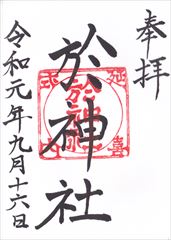 奉拝
於神社
令和元年九月十六日